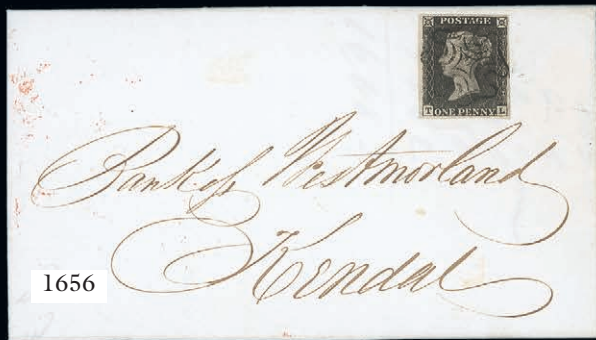 POSTAGE
T ONE PENNY L
Bank of Westmorland
Kendal
1656